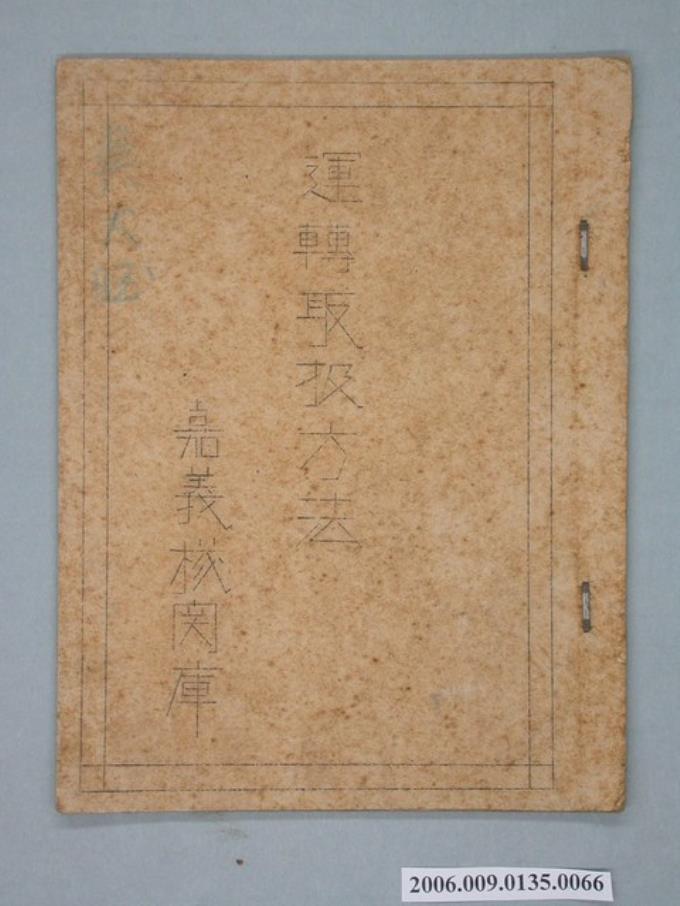 運轉取扱方法
嘉義機関庫
2006.009.0135.0066